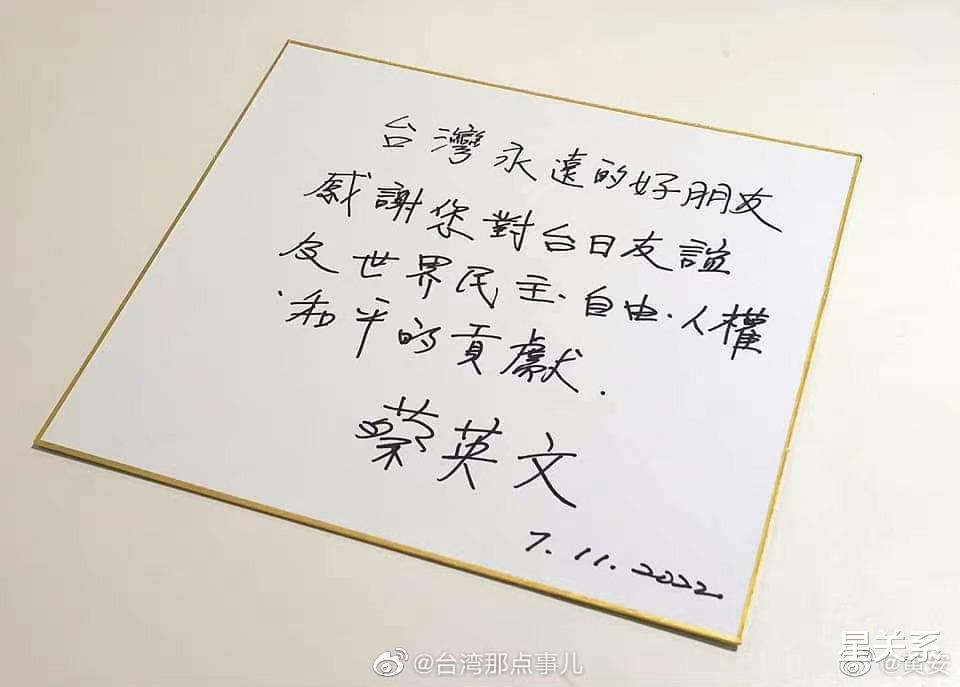 台灣永遠的好朋友
感謝您對台日友誼
及世界民主、自由、人權
、和平的貢獻.
蔡英文
7.11.2022.
@台湾那点事儿
星关系
@黄安